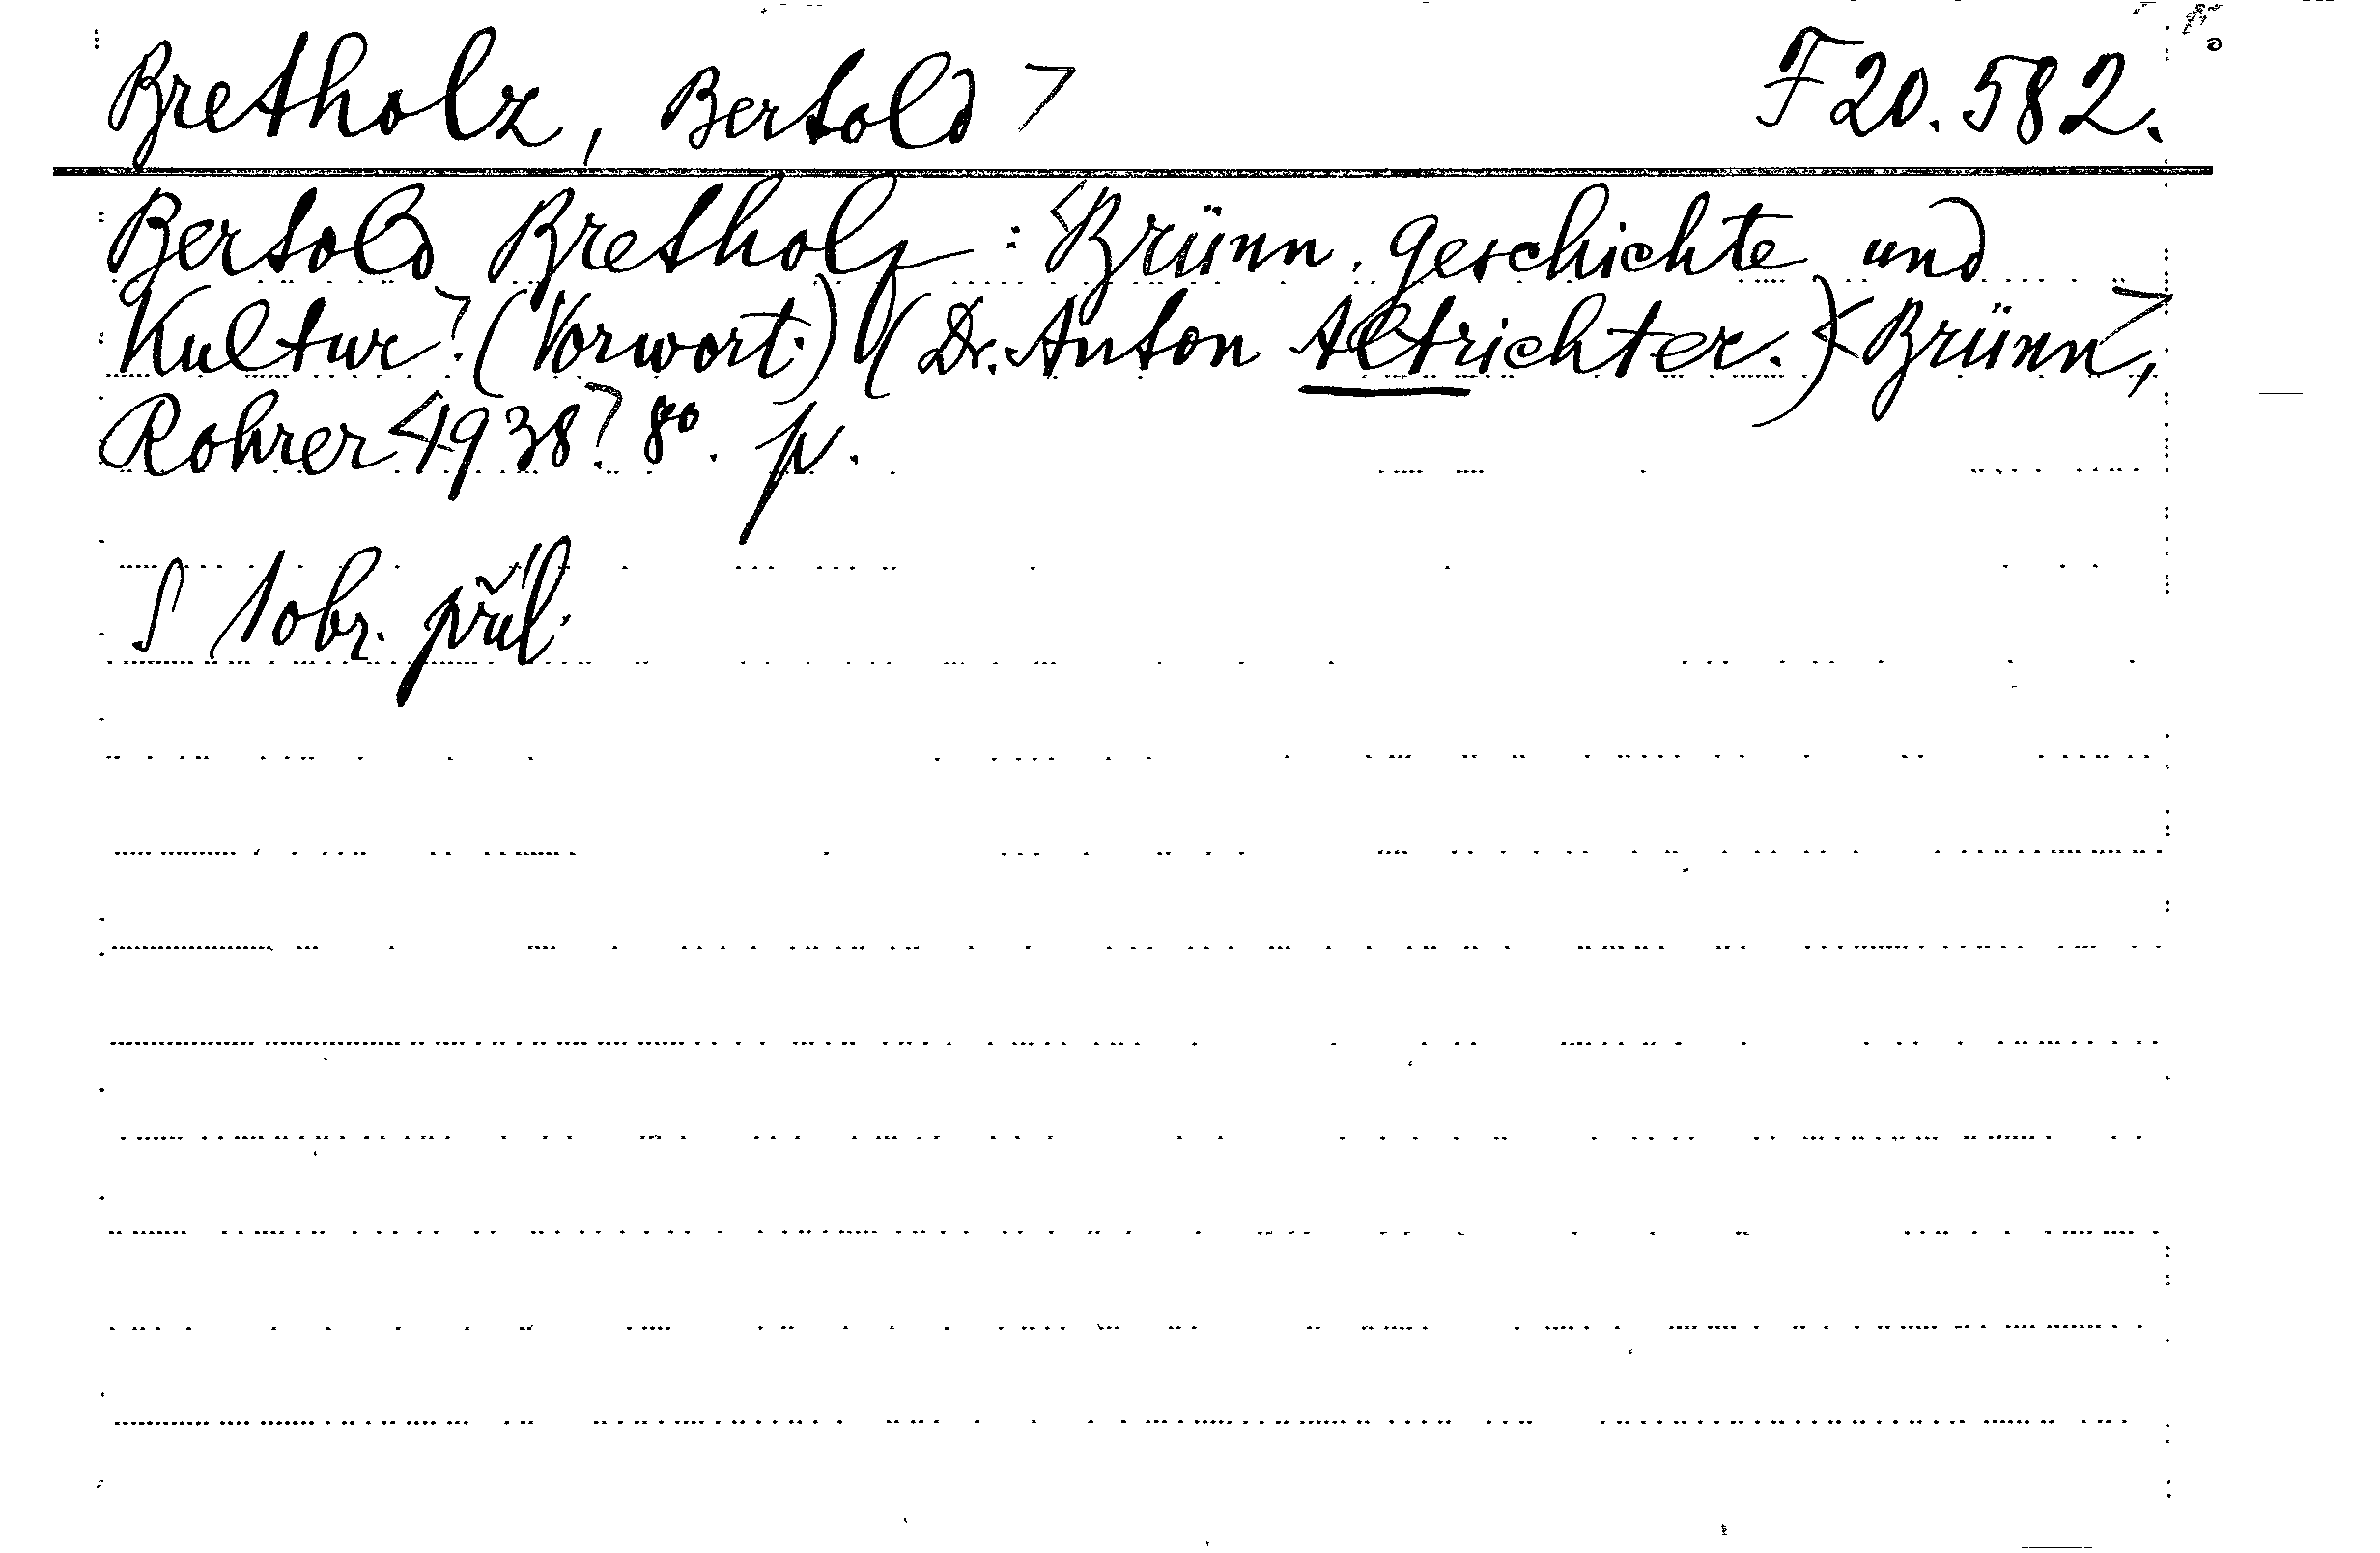 Bretholz, Bertold> F 20.582.
Bertold Bretholz: <Brünn. Geschichte und
Kultur>. (Vorwort:) (Dr. Anton Altrichter.) <Brünn>,
Rohrer <1938>. 8°. p.
S 1 obr. příl.